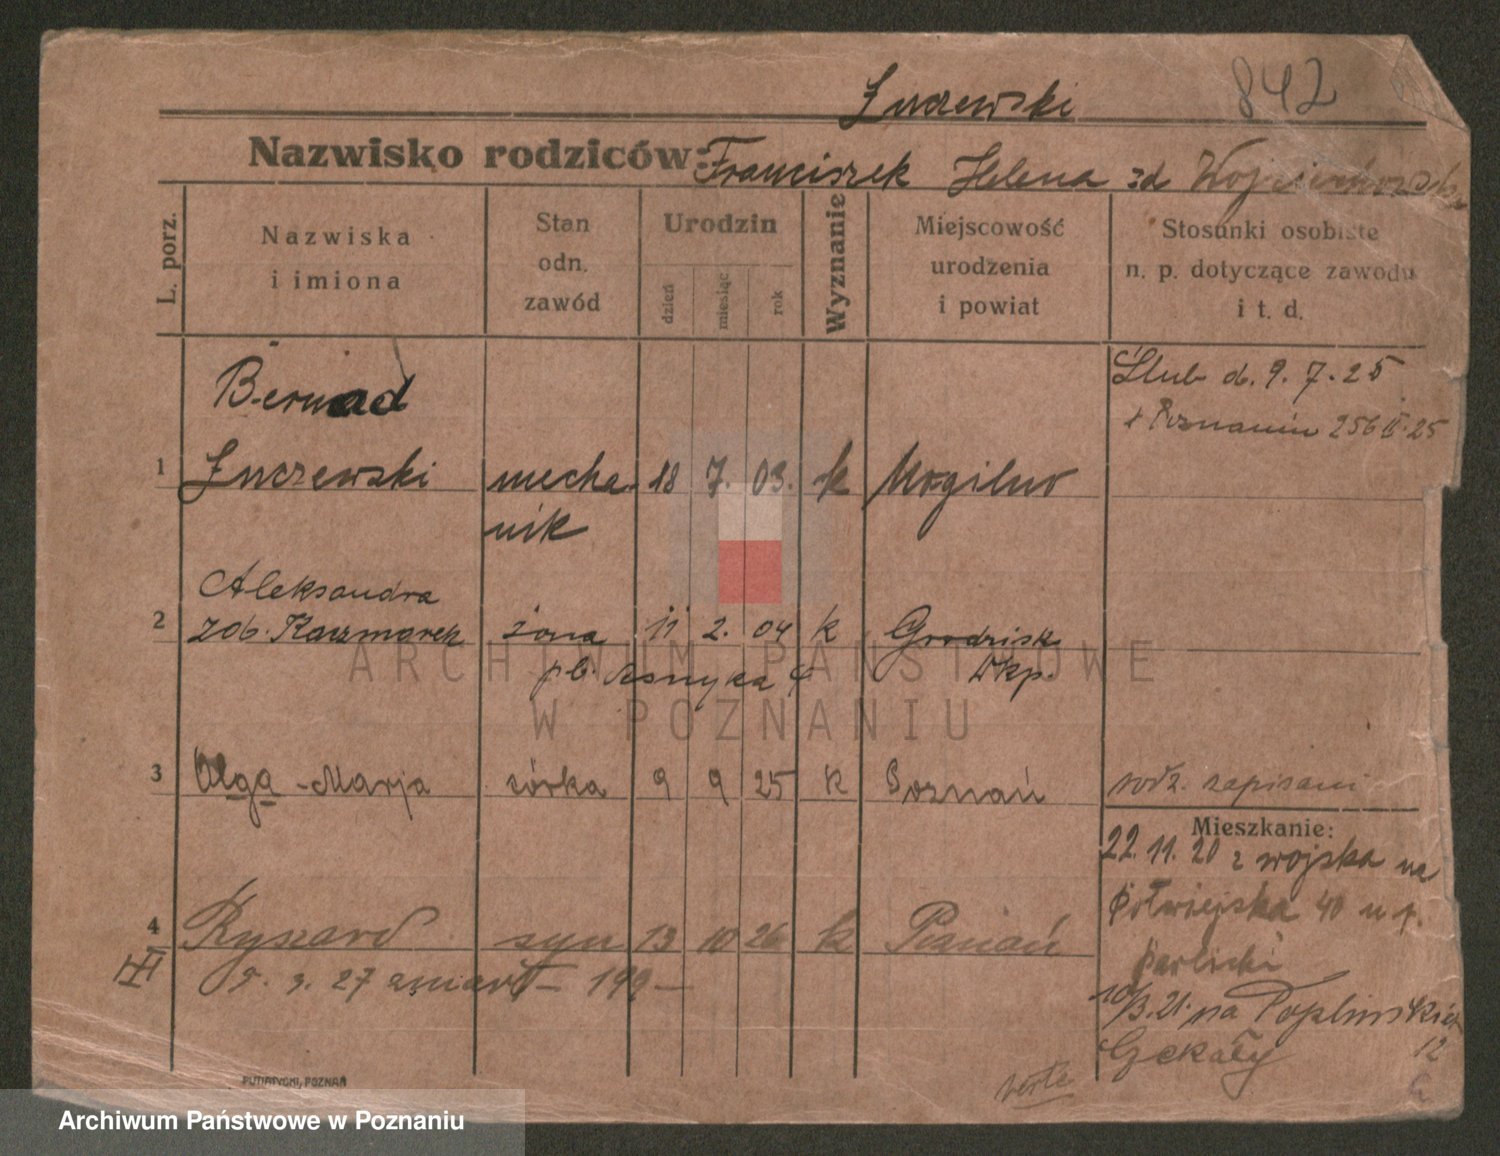 842
Żuczewski
Nazwisko rodziców: Franciszek Helena zd Wojciechowska
L. porz.
Nazwiska i imiona
Stan odn. zawód
Urodzin
dzień
miesiąc
rok
Wyznanie
Miejscowość urodzenia i powiat
Stosunki osobiste n. p. dotyczące zawodu i t. d.
Ślub d. 9. 7. 25
Poznaniu 256 II. 25
Bernad
1 Żuczewski mecha- 18 7. 03. k Mogilno
nik
Aleksandra
2 zob. Kaczmarek żona 11 2. 04 k Grodzisk
pb. Asnyka 4 Wkp.
3 Olga-Marja córka 9 9 25 k Poznań rodz. zapisani
Mieszkanie:
22. 11. 20 z wojska na
Półwiejska 40 u p.
4 Ryszard syn 13 10 26 k Poznań
27 zmarł – 199 –
B. 21. na Poplińskich
12
verte
PUTIATYCKI, POZNAŃ
ARCHIWUM PAŃSTWOWE
W POZNANIU
Archiwum Państwowe w Poznaniu